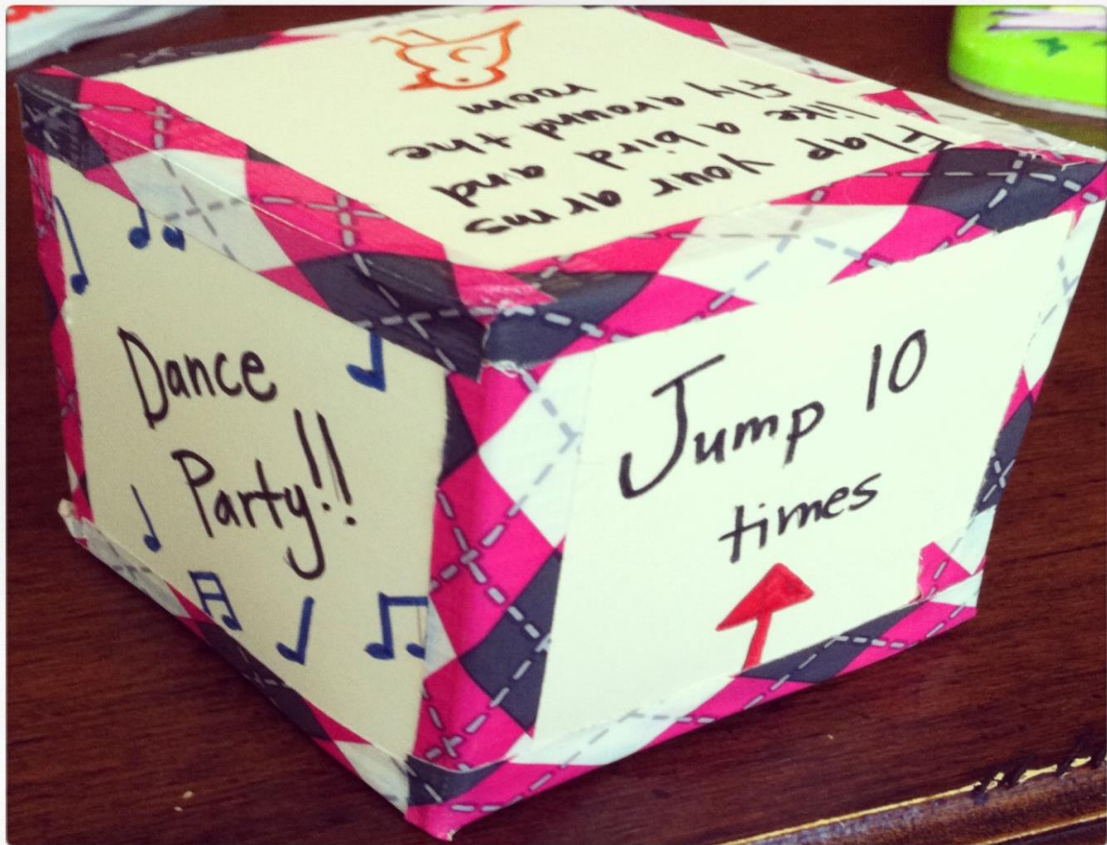 Flap your arms
like a bird and
fly around the
room
Dance
Party!!
Jump 10
times